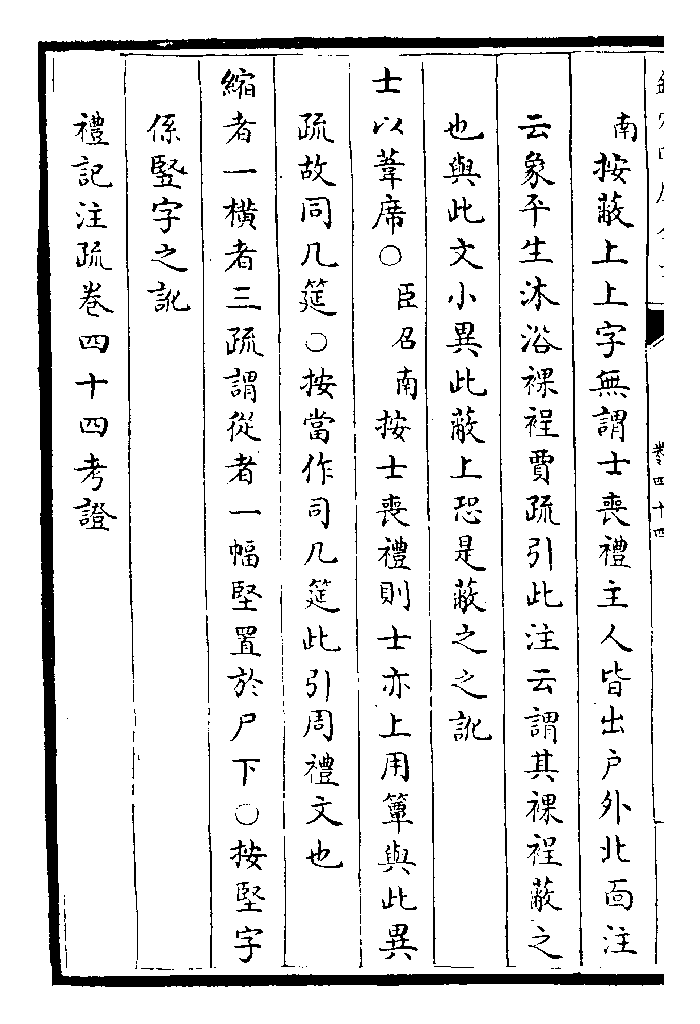 卷四十四
南按蔽上上字無謂士喪禮主人皆出户外北面注
云象平生沐浴裸裎賈疏引此注云謂其裸裎蔽之
也與此文小異此蔽上恐是蔽之之訛
士以葦席○臣召南按士喪禮則士亦上用簟與此異
疏故同几筵○按當作司几筵此引周禮文也
縮者一橫者三疏謂從者一幅堅置於尸下○按堅字
係竪字之訛
禮記注疏卷四十四考證